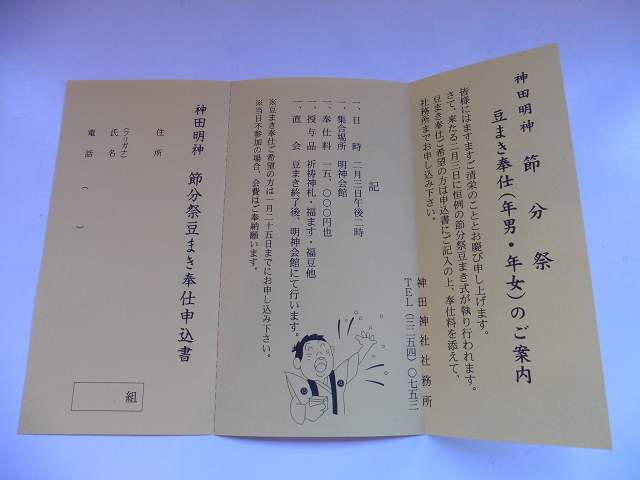 神田明神 節分祭
豆まき奉仕(年男・年女)のご案内
皆様にはますますご清栄のこととお慶び申し上げます。
さて、来たる二月三日に恒例の節分祭豆まき式が執り行われます。
豆まき奉仕ご希望の方は申込書にご記入の上、奉仕料を添えて、
社務所までお申し込み下さい。
神田神社社務所
TEL(三二五四)〇七五三
記
一、日時 二月三日午後二時
一、集合場所 明神会館
一、奉仕料 一五、〇〇〇円也
一、授与品 祈祷神札・福ます・福豆他
一、直会 豆まき終了後、明神会館にて行います。
※豆まき奉仕ご希望の方は一月二十五日までにお申し込み下さい。
※当日不参加の場合、会費はご奉納願います。
神田明神 節分祭豆まき奉仕申込書
住所
(フリガナ)
氏名
電話 ( )
組